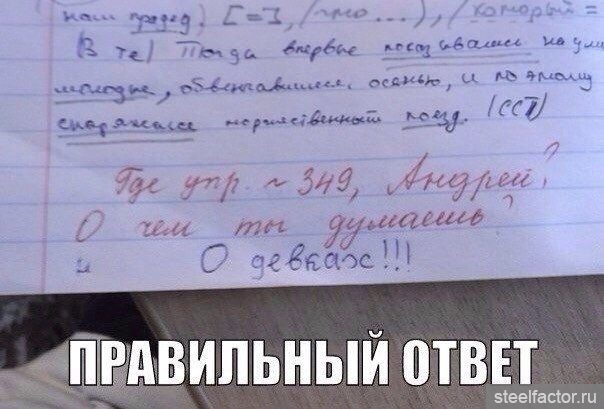 наш прадед). [=], (что...), (который =
(В те) Тогда впервые показывались на ули
молодые, обвенчавшиеся осенью, и по этому
снаряжался торжественный поезд. (ССП)
Где упр. ~ 349, Андрей?
О чем ты думаешь?
и О девках!!!
ПРАВИЛЬНЫЙ ОТВЕТ
steelfactor.ru